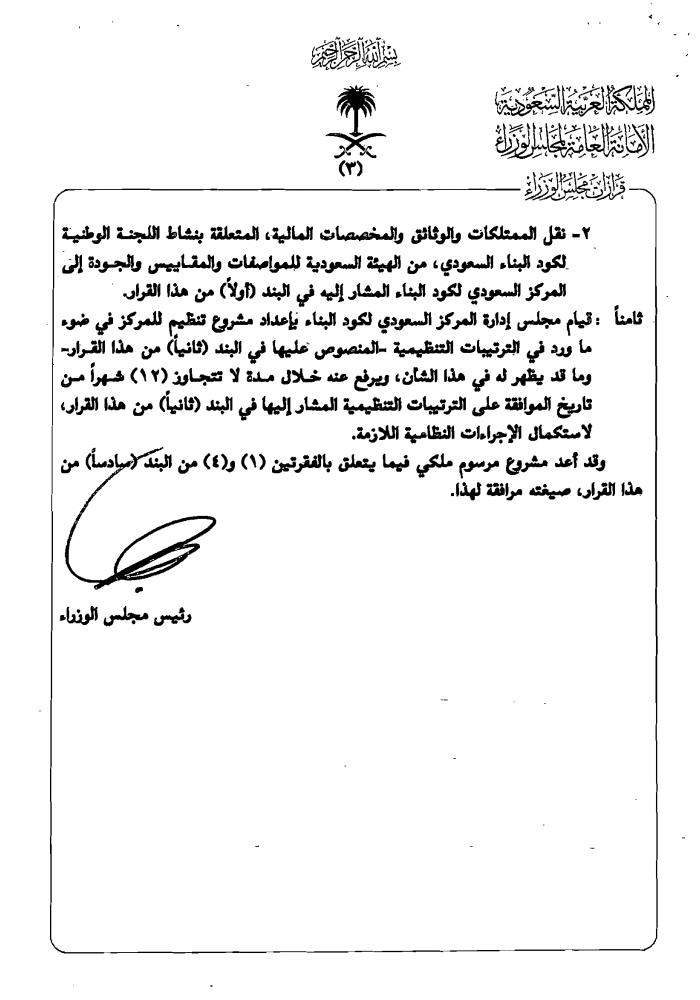 بسم الله الرحمن الرحيم
المملكة العربية السعودية
الأمانة العامة لمجلس الوزراء
(٣)
قرارات مجلس الوزراء
٢- نقل الممتلكات والوثائق والمخصصات المالية، المتعلقة بنشاط اللجنة الوطنية
لكود البناء السعودي، من الهيئة السعودية للمواصفات والمقاييس والجودة إلى
المركز السعودي لكود البناء المشار إليه في البند (أولاً) من هذا القرار.
ثامناً : قيام مجلس إدارة المركز السعودي لكود البناء بإعداد مشروع تنظيم للمركز في ضوء
ما ورد في الترتيبات التنظيمية -المنصوص عليها في البند (ثانياً) من هذا القرار-
وما قد يظهر له في هذا الشأن، ويرفع عنه خلال مدة لا تتجاوز (١٢) شهراً من
تاريخ الموافقة على الترتيبات التنظيمية المشار إليها في البند (ثانياً) من هذا القرار،
لاستكمال الإجراءات النظامية اللازمة.
وقد أعد مشروع مرسوم ملكي فيما يتعلق بالفقرتين (١) و(٤) من البند (سادساً) من
هذا القرار، صيغته مرافقة لهذا.
رئيس مجلس الوزراء